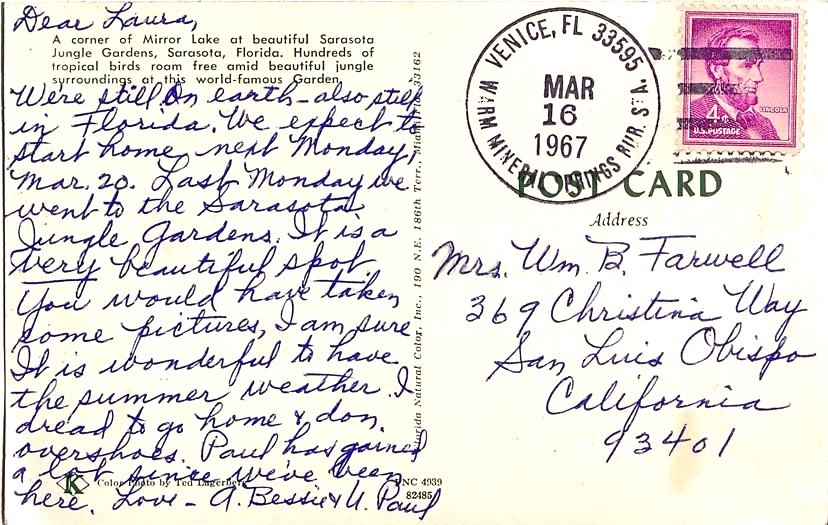 Dear Laura,
A corner of Mirror Lake at beautiful Sarasota
Jungle Gardens, Sarasota, Florida. Hundreds of
tropical birds roam free amid beautiful jungle
surroundings at this world-famous Garden.
We're still on earth - also still
in Florida. We expect to
start home next Monday,
Mar. 20. Last Monday we
went to the Sarasota
Jungle Gardens. It is a
very beautiful spot.
You would have taken
some pictures, I am sure
It is wonderful to have
the summer weather. I
dread to go home & don
overshoes. Paul has gained
a lot since we've been
here. Love - A. Bessie & U. Paul
K
Color Photo by Ted Lagerberg
FNC 4939
82485
Florida Natural Color, Inc., 190 N.E. 186th Terr. Miami, Fla. 33162
VENICE, FL 33595
MAR
16
1967
WARM MINERAL SPRINGS RUR. STA.
4¢
LINCOLN
U.S. POSTAGE
POST CARD
Address
Mrs. Wm. B. Farwell
369 Christina Way
San Luis Obispo
California
93401